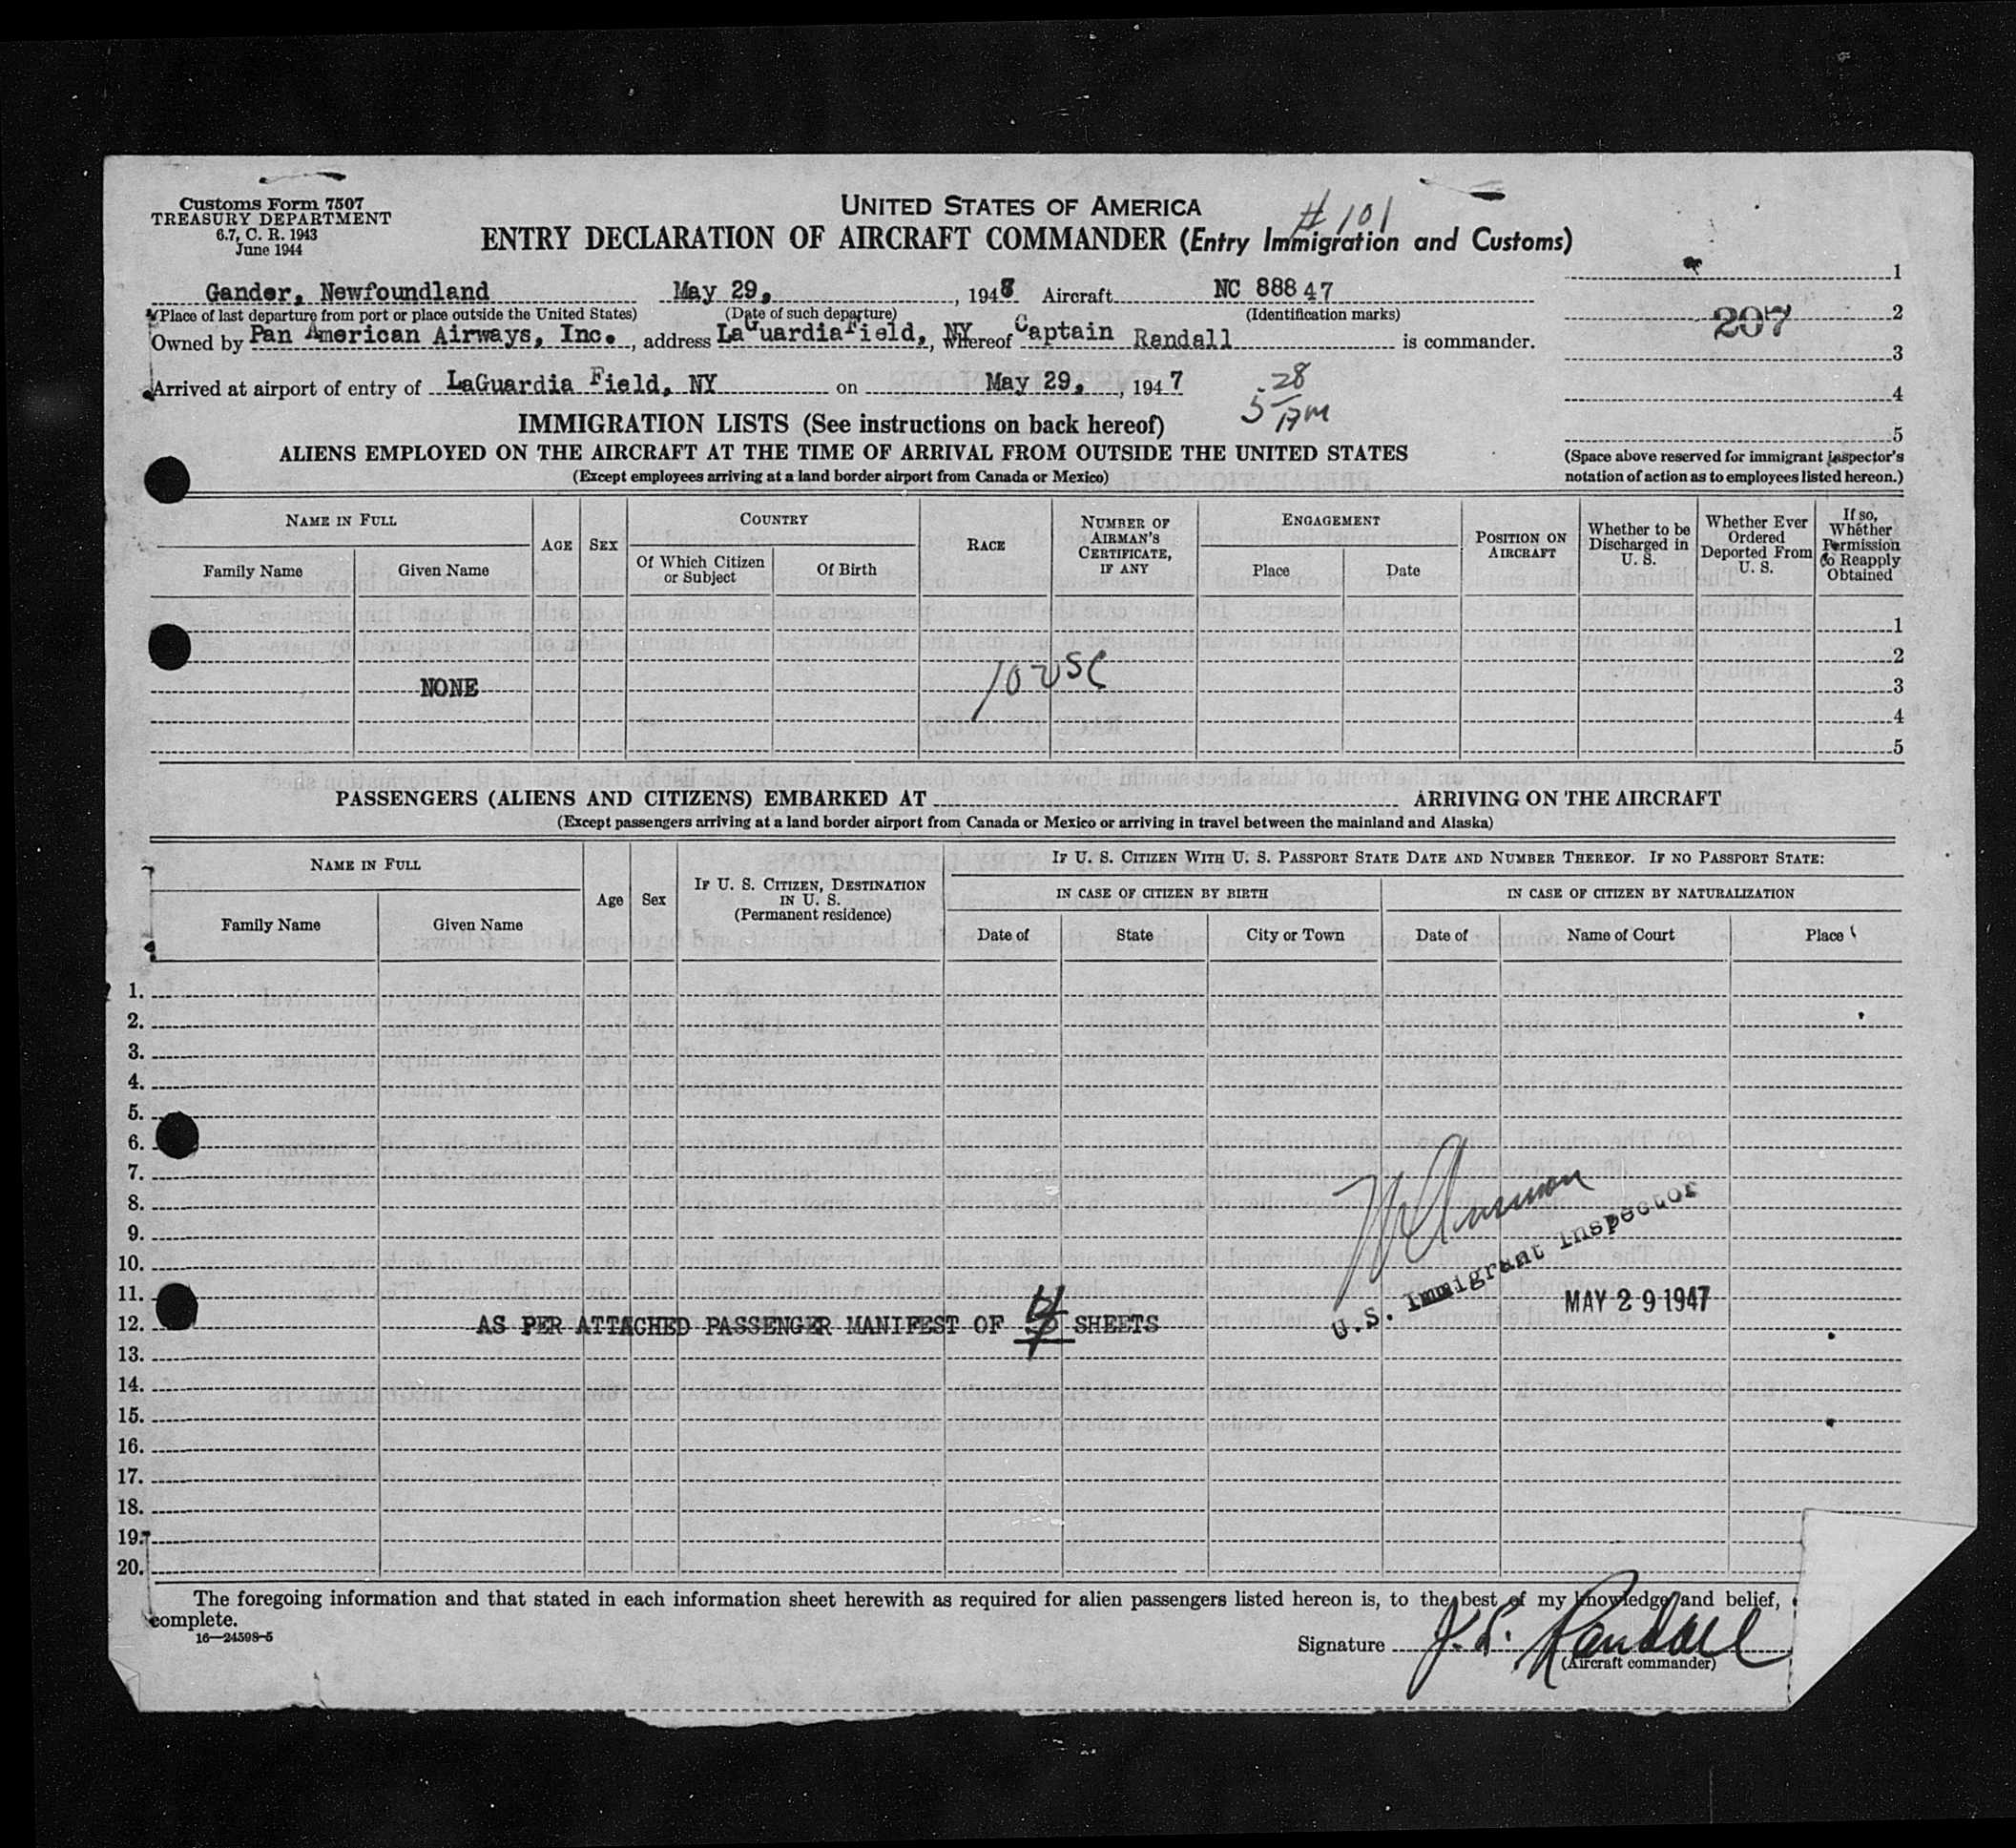 Customs Form 7507
TREASURY DEPARTMENT
6.7, C. R. 1943
June 1944
UNITED STATES OF AMERICA
# 101
ENTRY DECLARATION OF AIRCRAFT COMMANDER (Entry Immigration and Customs)
Gander, Newfoundland May 29, , 1948 Aircraft NC 88847
(Place of last departure from port or place outside the United States) (Date of such departure) (Identification marks)
Owned by Pan American Airways, Inc. , address LaGuardia Field, NY , whereof Captain Randall is commander.
Arrived at airport of entry of LaGuardia Field, NY on May 29, , 1947
5 28
1
207 2
3
4
5
(Space above reserved for immigrant inspector's
notation of action as to employees listed hereon.)
IMMIGRATION LISTS (See instructions on back hereof)
ALIENS EMPLOYED ON THE AIRCRAFT AT THE TIME OF ARRIVAL FROM OUTSIDE THE UNITED STATES
(Except employees arriving at a land border airport from Canada or Mexico)
NAME IN FULL
Family Name Given Name
AGE SEX
COUNTRY
Of Which Citizen or Subject Of Birth
RACE
NUMBER OF AIRMAN'S CERTIFICATE, IF ANY
ENGAGEMENT
Place Date
POSITION ON AIRCRAFT
Whether to be Discharged in U. S.
Whether Ever Ordered Deported From U. S.
If so, Whether Permission to Reapply Obtained
1
2
NONE 10 USC 3
4
5
PASSENGERS (ALIENS AND CITIZENS) EMBARKED AT ARRIVING ON THE AIRCRAFT
(Except passengers arriving at a land border airport from Canada or Mexico or arriving in travel between the mainland and Alaska)
NAME IN FULL
Family Name Given Name
Age Sex
IF U. S. CITIZEN, DESTINATION IN U. S. (Permanent residence)
IF U. S. CITIZEN WITH U. S. PASSPORT STATE DATE AND NUMBER THEREOF. IF NO PASSPORT STATE:
IN CASE OF CITIZEN BY BIRTH IN CASE OF CITIZEN BY NATURALIZATION
Date of State City or Town Date of Name of Court Place
1.
2.
3.
4.
5.
6.
7.
8.
9.
10.
11.
12. AS PER ATTACHED PASSENGER MANIFEST OF 4 SHEETS
U.S. Immigrant Inspector
MAY 29 1947
13.
14.
15.
16.
17.
18.
19.
20.
The foregoing information and that stated in each information sheet herewith as required for alien passengers listed hereon is, to the best of my knowledge and belief,
complete.
16—24598-5
Signature J. S. Randall
(Aircraft commander)